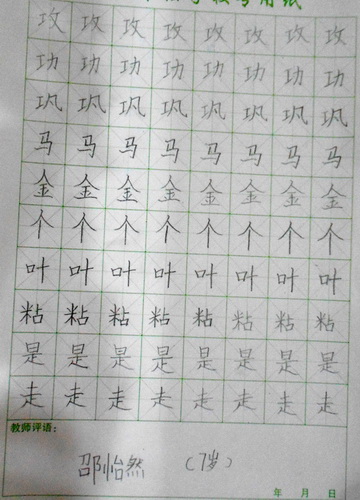 攻攻攻攻攻攻攻攻
功功功功功功功功
巩巩巩巩巩巩巩巩
马马马马马马马马
金金金金金金金金
个个个个个个个个
叶叶叶叶叶叶叶叶
粘粘粘粘粘粘粘粘
是是是是是是是是
走走走走走走走走
教师评语：
邵怡然 （7岁）
年 月 日